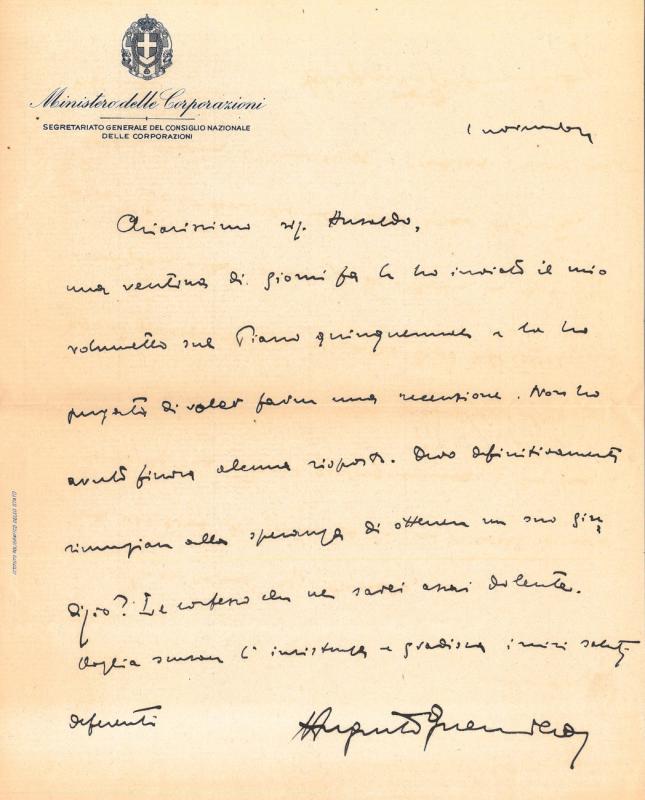 Ministero delle Corporazioni
SEGRETARIATO GENERALE DEL CONSIGLIO NAZIONALE
DELLE CORPORAZIONI
1 novembre
Chiarissimo sig. Ansaldo,
una ventina di giorni fa le ho inviato il mio
volumetto sul Piano quinquennale e la ho
pregata di voler farne una recensione. Non ho
avuto finora alcuna risposta. Devo definitivamente
rinunziare alla speranza di ottenere un suo giu,
dizio? Le confesso che ne sarei assai dolente.
Voglia scusare l'insistenza e gradisca i miei saluti
deferenti
Augusto
ISTITUTO POLIGRAFICO DELLO STATO